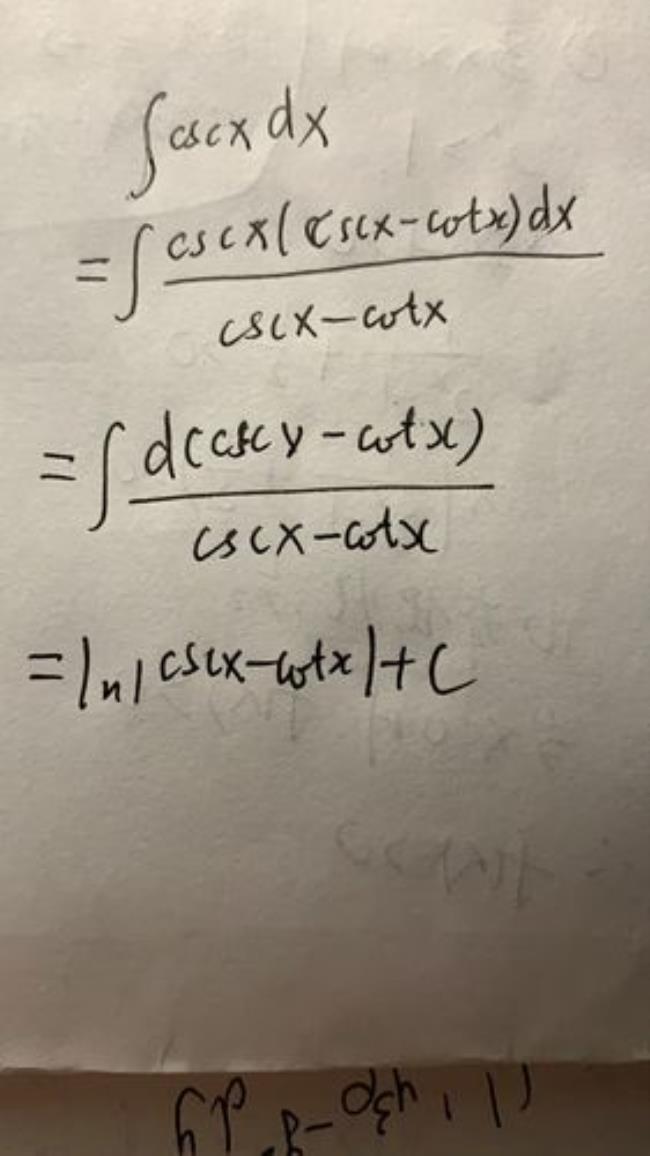 ∫cscx dx
=∫ cscx(cscx-cotx)dx / cscx-cotx
=∫ d(cscy-cotx) / cscx-cotx
=ln|cscx-cotx|+C